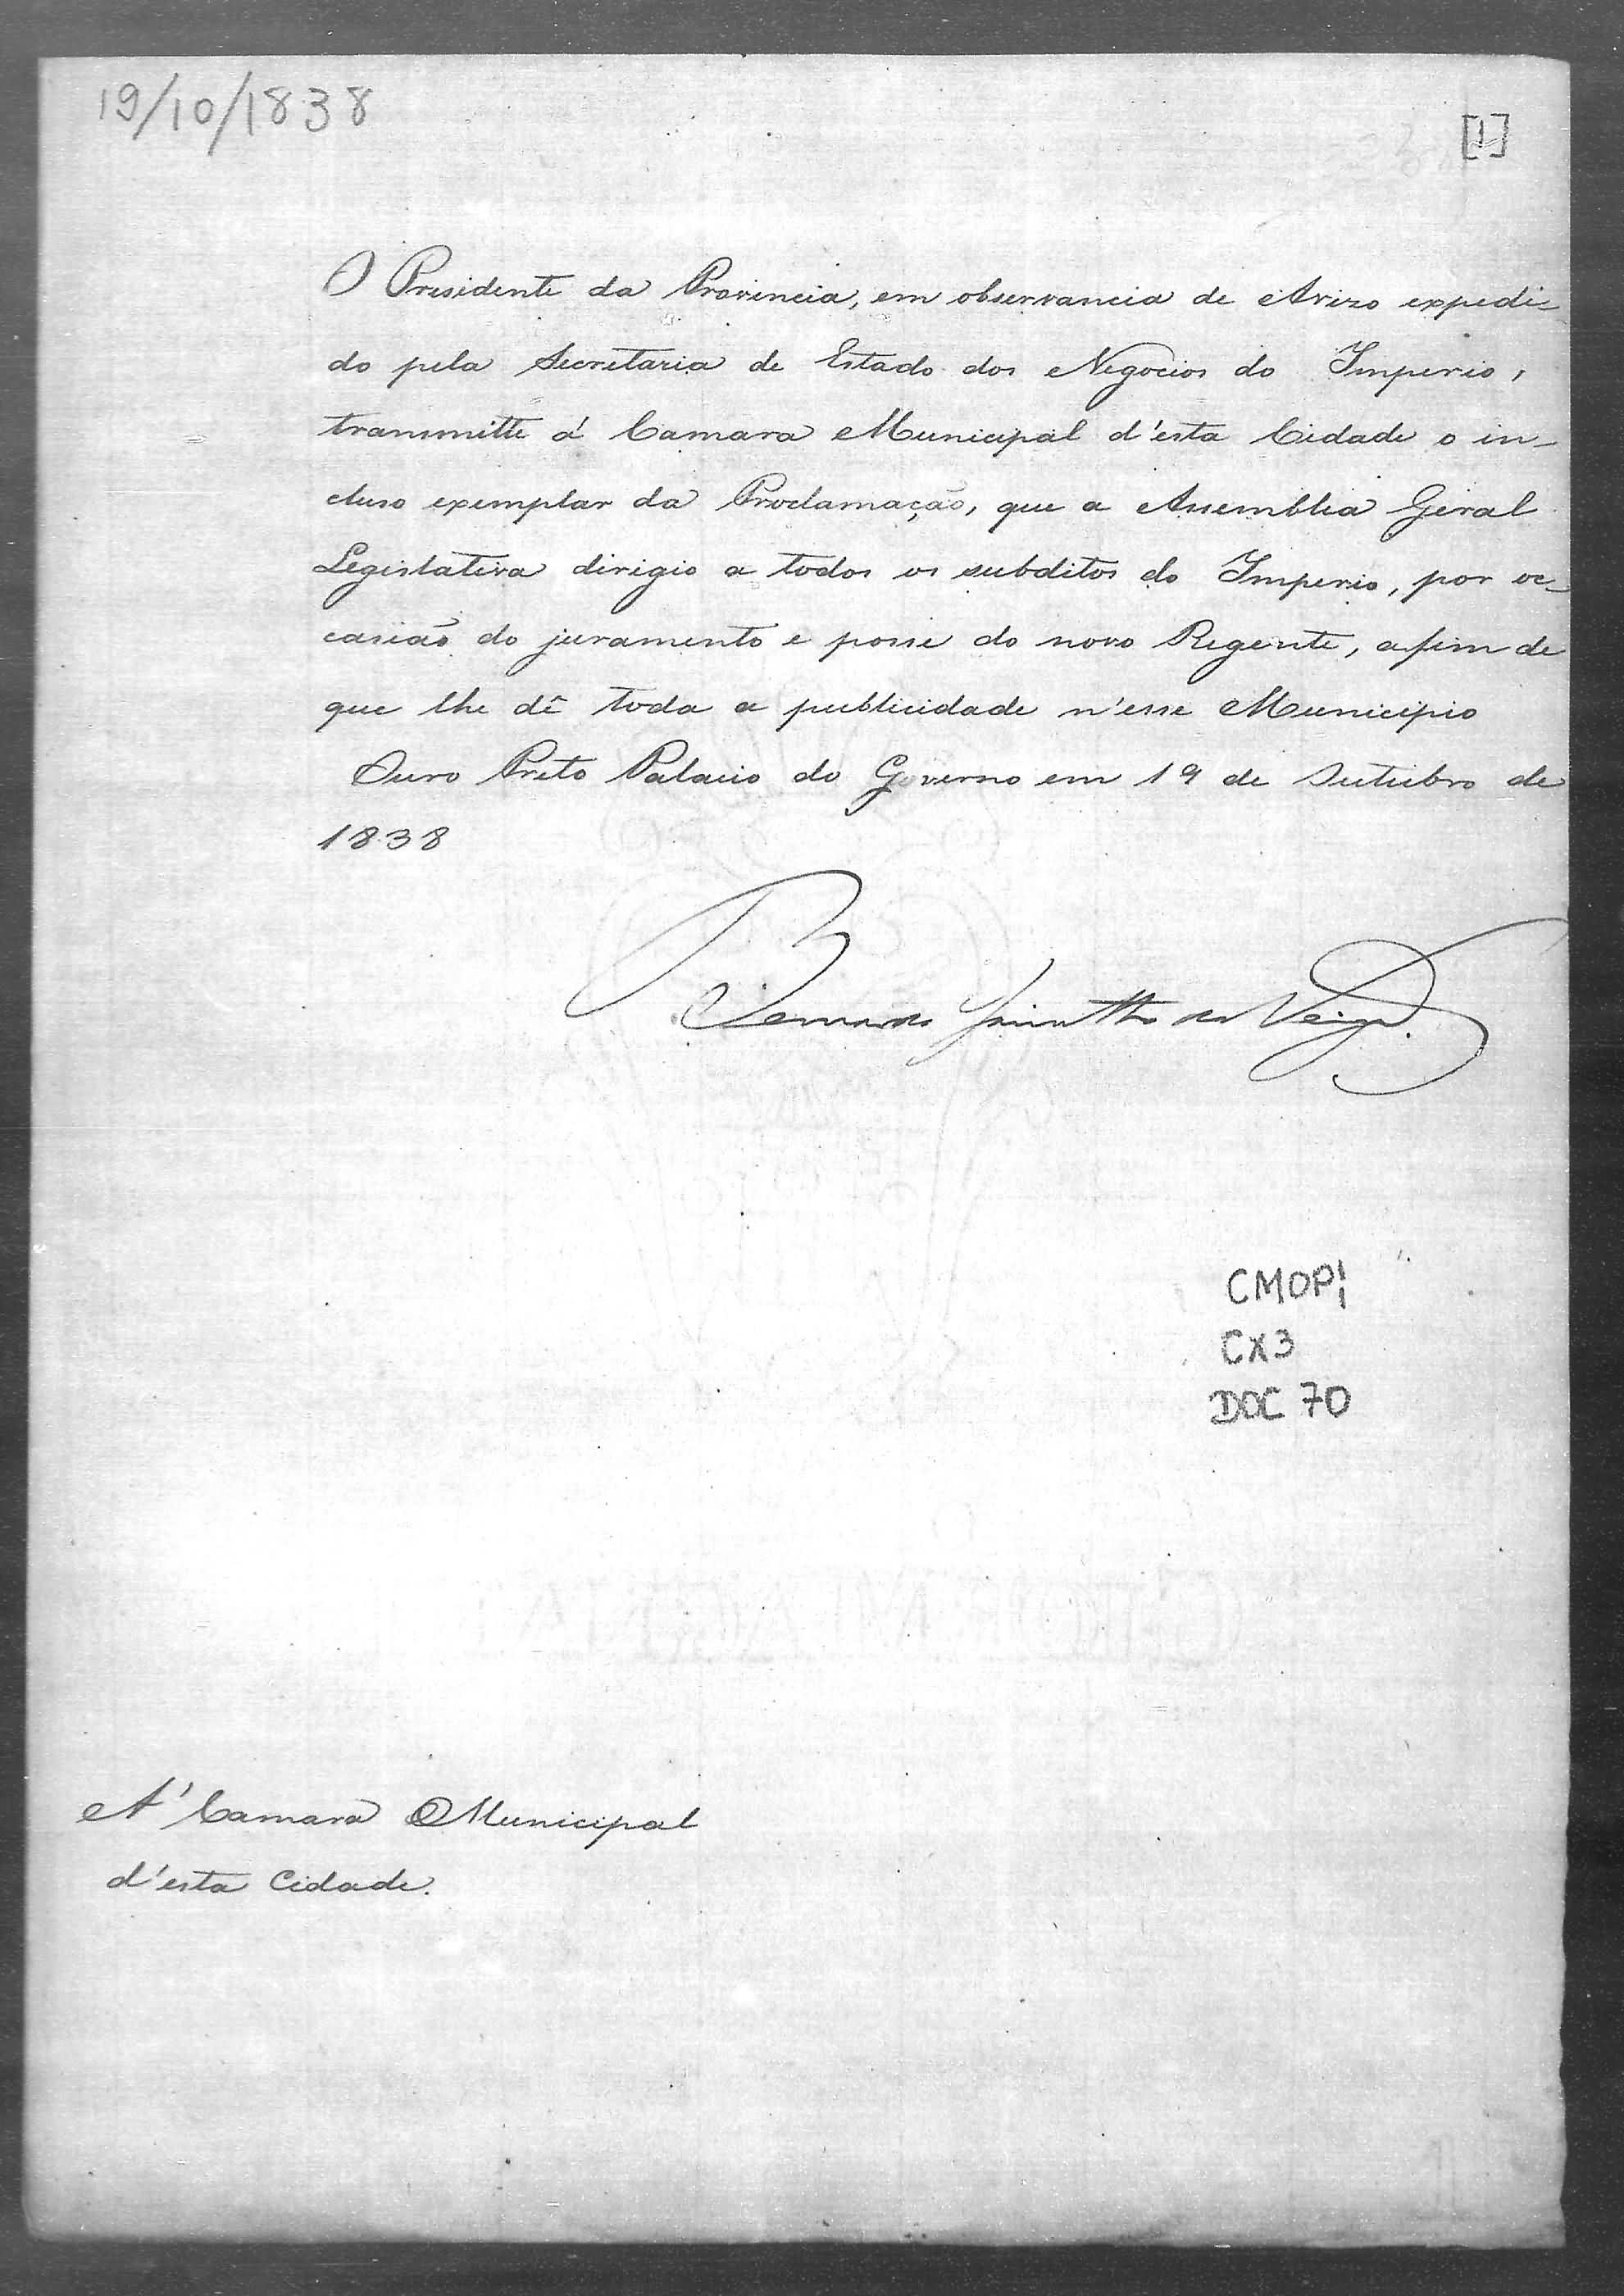 19/10/1838
[1]
O Presidente da Provincia, em observancia de Avizo expedi-
do pela Secretaria de Estado dos Negocios do Imperio,
transmitte á Camara Municipal d'esta Cidade o in-
cluso exemplar da Proclamação, que a Assemblea Geral
Legislativa dirigio a todos os subditos do Imperio, por oc-
casião do juramento e posse do novo Regente, afim de
que lhe dê toda a publicidade n'esse Municipio
Ouro Preto Palacio do Governo em 19 de Outubro de
1838
Bernardo Jacintho da Veiga.
CMOP1
CX3
DOC 70
A' Camara Municipal
d'esta Cidade.